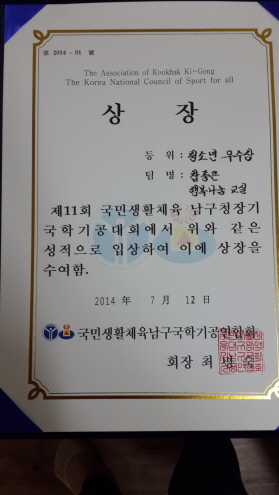 第 2014 - 01 號
The Association of Kookhak Ki-Gong
The Korea National Council of Sport for all
상 장
등 위 : 청소년 우수상
팀 명 : 참좋은
행복나눔 교실
제11회 국민생활체육 남구청장기
국학기공대회에서 위와 같은
성적으로 입상하여 이에 상장을
수여함.
2014 年 7 月 12 日
국민생활체육남구국학기공연합회
회장 최 병 숙